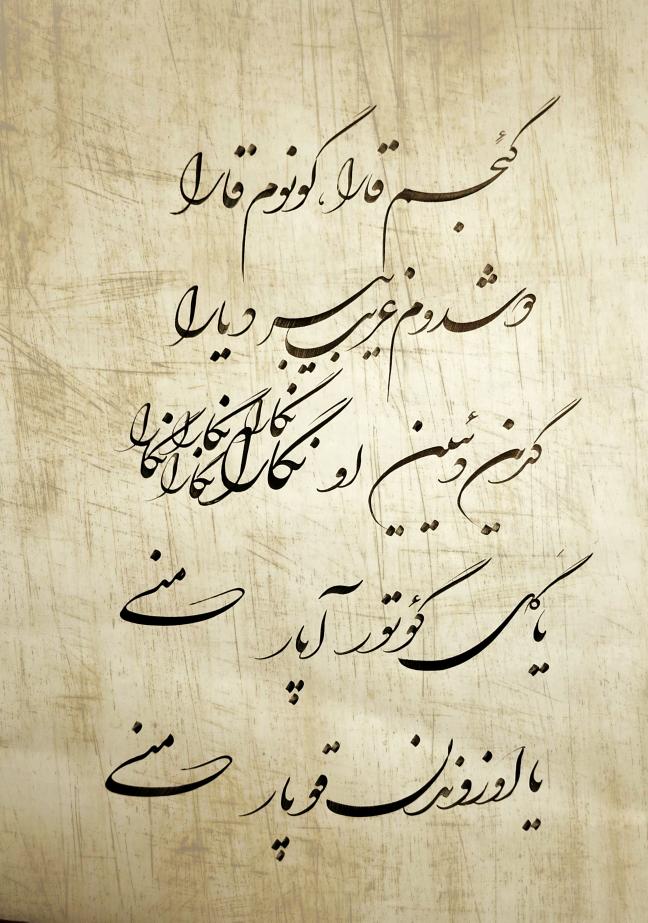 گئجم قارا، گونوم قارا
دوشدوم غریب بیر دیارا
گدین دئیین او نگارا نگارا نگارا نگارا نگارا نگارا
یا گلی گؤتور آپار منی
یا اوزوندن قوپار منی